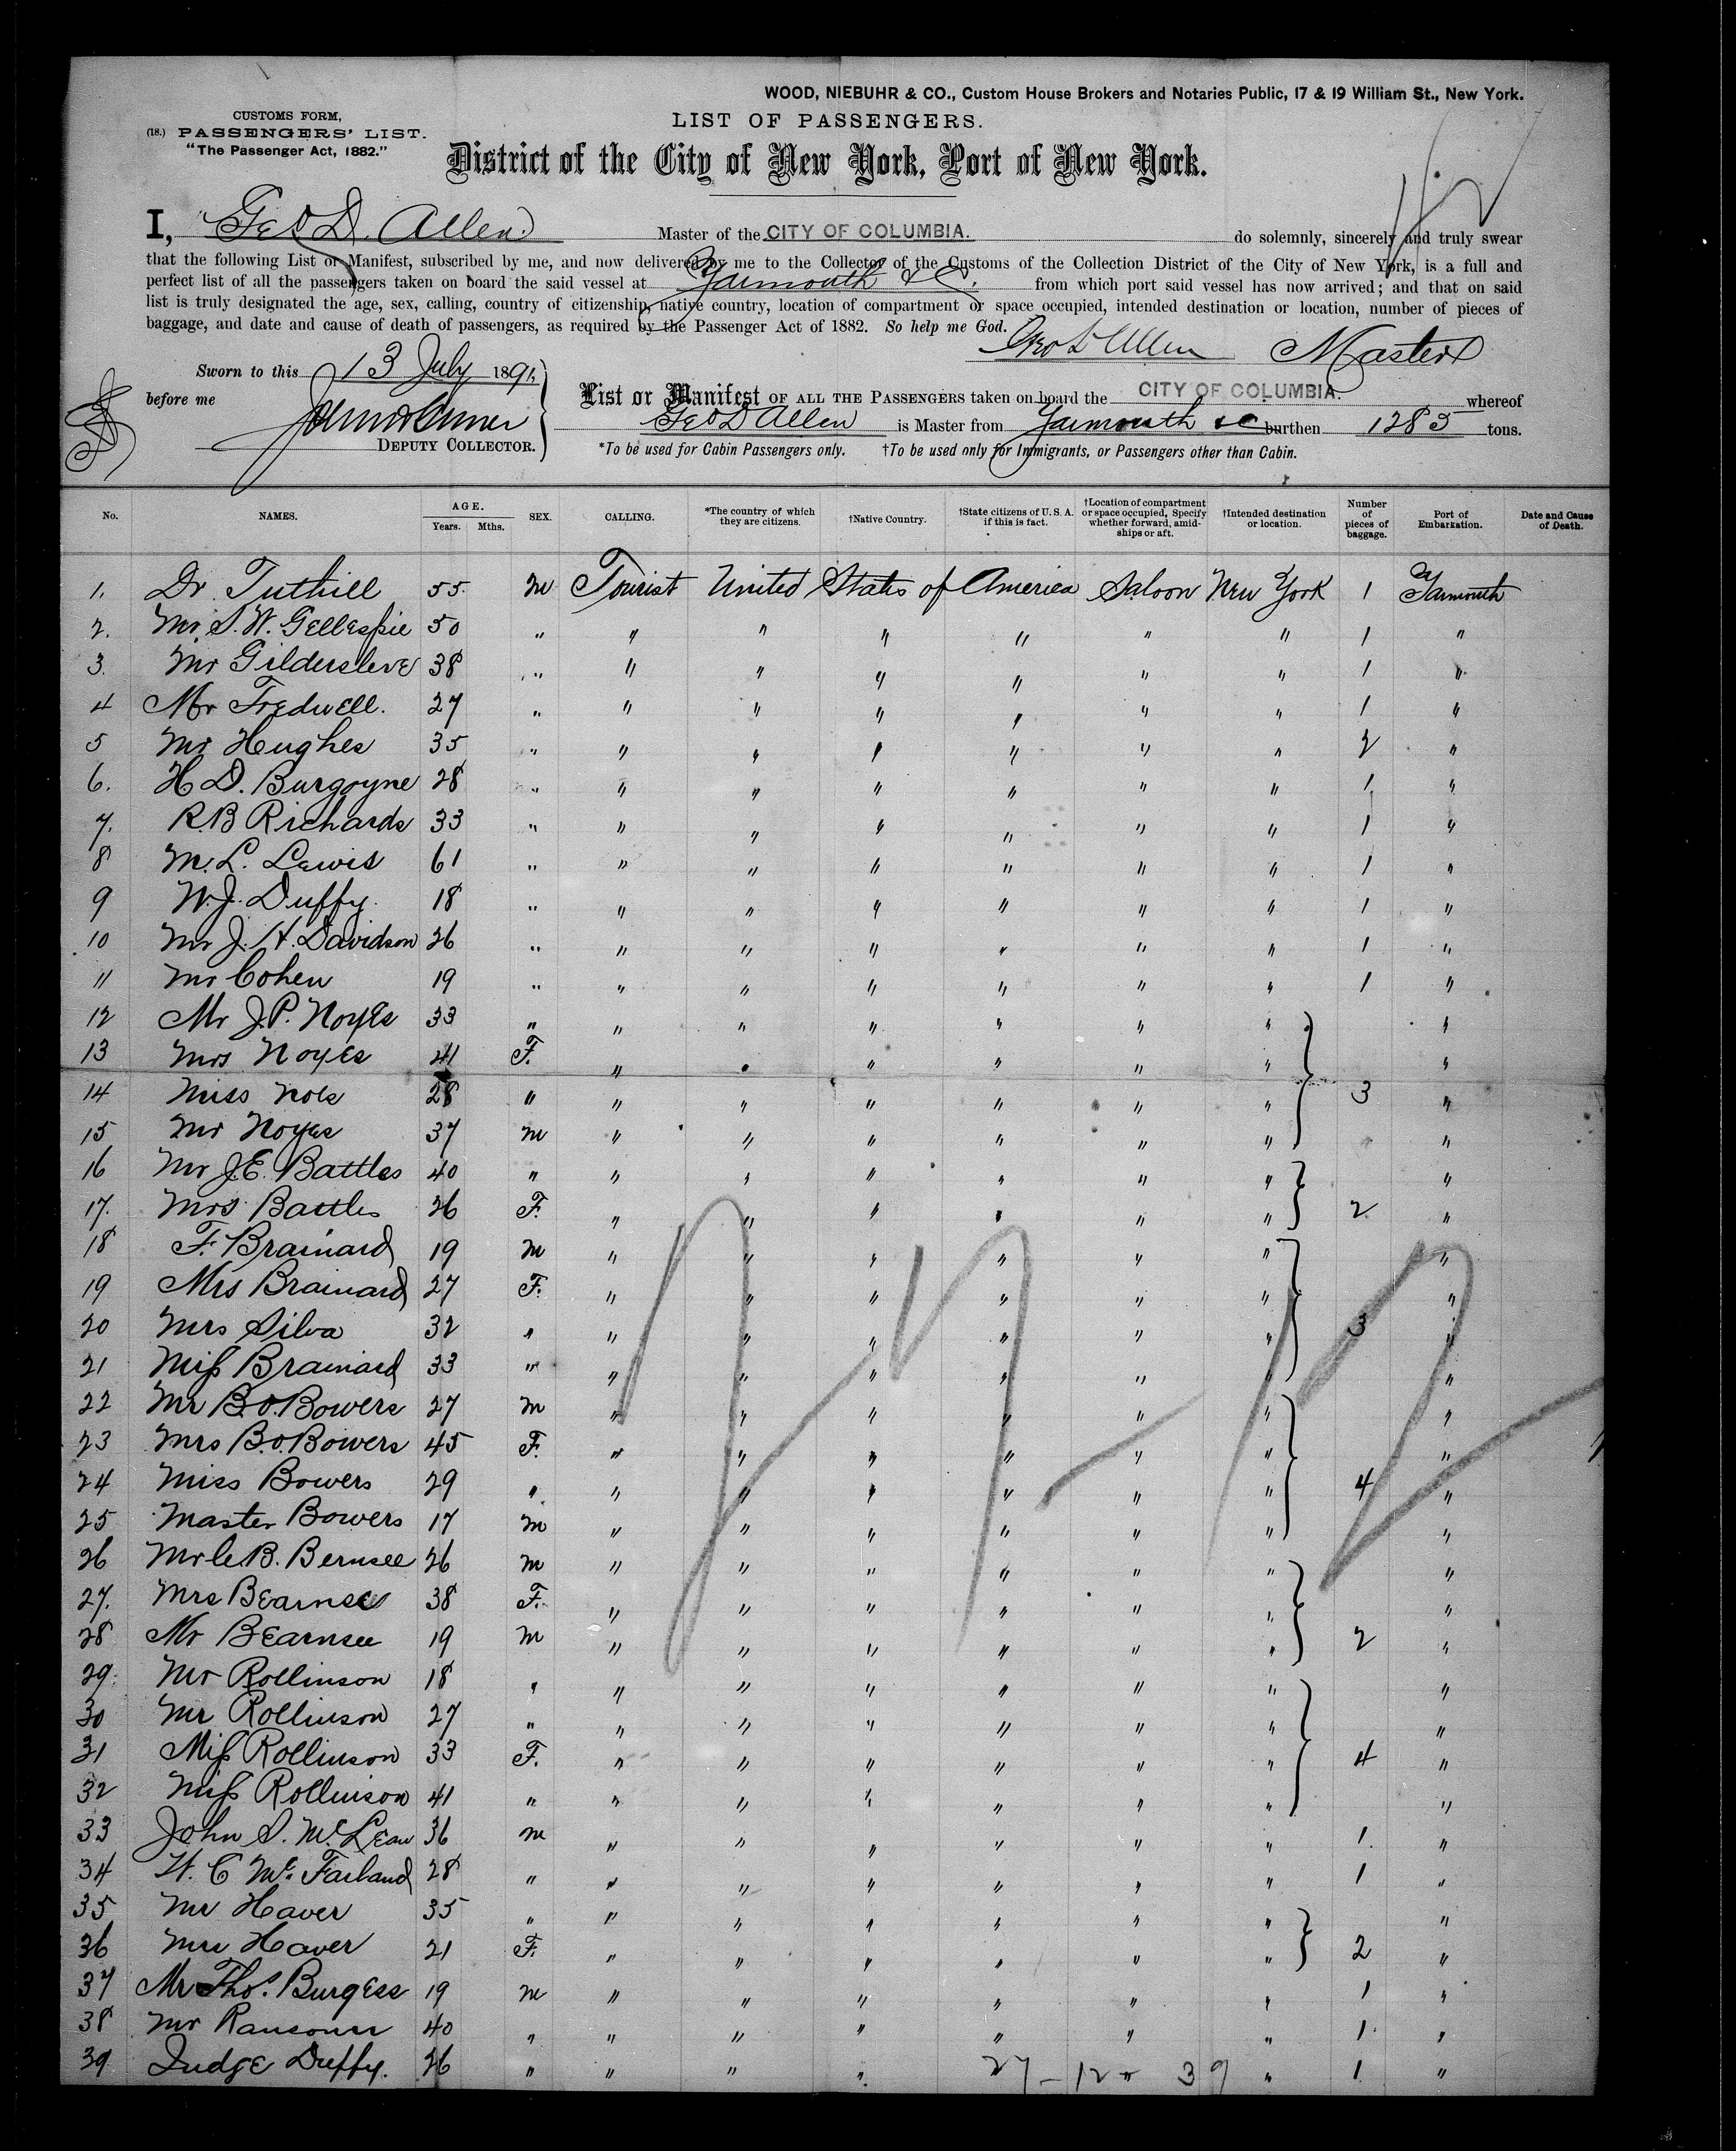 WOOD, NIEBUHR & CO., Custom House Brokers and Notaries Public, 17 & 19 William St., New York.
CUSTOMS FORM,
(18.) PASSENGERS' LIST.
"The Passenger Act, 1882."
LIST OF PASSENGERS.
District of the City of New York, Port of New York.
I, Geo D. Allen. Master of the CITY OF COLUMBIA. do solemnly, sincerely and truly swear
that the following List or Manifest, subscribed by me, and now delivered by me to the Collector of the Customs of the Collection District of the City of New York, is a full and
perfect list of all the passengers taken on board the said vessel at Yarmouth &c. from which port said vessel has now arrived; and that on said
list is truly designated the age, sex, calling, country of citizenship, native country, location of compartment or space occupied, intended destination or location, number of pieces of
baggage, and date and cause of death of passengers, as required by the Passenger Act of 1882. So help me God.
Geo D Allen Master
Sworn to this 13 July 189
before me
DEPUTY COLLECTOR.
List or Manifest OF ALL THE PASSENGERS taken on board the CITY OF COLUMBIA. whereof
Geo D Allen is Master from Yarmouth &c burthen 1285 tons.
*To be used for Cabin Passengers only. †To be used only for Immigrants, or Passengers other than Cabin.
No. NAMES. AGE. Years. Mths. SEX. CALLING. *The country of which they are citizens. †Native Country. †State citizens of U. S. A. if this is fact. †Location of compartment or space occupied, Specify whether forward, amidships or aft. †Intended destination or location. Number of pieces of baggage. Port of Embarkation. Date and Cause of Death.
1. Dr Tuthill 55. m Tourist United States of America Saloon New York 1 Yarmouth
2. Mr. S. W. Gellespie 50 " " " " " " " 1 "
3. Mr Gildersleve 38 " " " " " " " 1 "
4 Mr Tredwell. 27 " " " " " " " 1 "
5 Mr Hughes 35 " " " " " " " 2 "
6. H D. Burgoyne 28 " " " " " " " 1 "
7. R.B Richards 33 " " " " " " " 1 "
8 M. L. Lewis 61 " " " " " " " 1 "
9 W. J. Duffy. 18 " " " " " " " 1 "
10 Mr J. H. Davidson 26 " " " " " " " 1 "
11 Mr Cohen 19 " " " " " " " 1 "
12 Mr J.P. Noyes 33 " " " " " " " "
13 Mrs Noyes 41 F. " " " " " " "
14 Miss Noes 28 " " " " " " " 3 "
15 Mr Noyes 37 m " " " " " " "
16 Mr J.E. Battles 40 " " " " " " " "
17. Mrs Battles 26 F. " " " " " " 2 "
18 F. Brainard 19 m " " " " " " "
19 Mrs Brainard 27 F. " " " " " " "
20 Mrs Silva 32 " " " " " " " 3 "
21 Miss Brainard 33 " " " " " " " "
22 Mr B.O. Bowers 27 m " " " " " " "
23 Mrs B.O. Bowers 45 F. " " " " " " "
24 Miss Bowers 29 " " " " " " " 4 "
25 Master Bowers 17 m " " " " " " "
26 Mr C. B. Bernsee 26 m " " " " " " "
27. Mrs Bearnse 38 F. " " " " " " "
28 Mr Bearnsee 19 m " " " " " " 2 "
29. Mr Rollinson 18 " " " " " " " "
30 Mr Rollinson 27 " " " " " " " "
31 Miss Rollinson 33 F. " " " " " " 4 "
32 Miss Rollinson 41 " " " " " " " "
33 John S. McLean 36 m " " " " " " 1. "
34 W. C McFarland 28 " " " " " " " 1 "
35 Mr Haver 35 " " " " " " " "
36 Mrs Haver 21 F. " " " " " " 2 "
37 Mr Thos. Burgess 19 m " " " " " " 1 "
38 Mr Ransomer 40 " " " " " " " 1. "
39 Judge Duffy. 26 " " " " 27 - 12 = 39 " 1. "